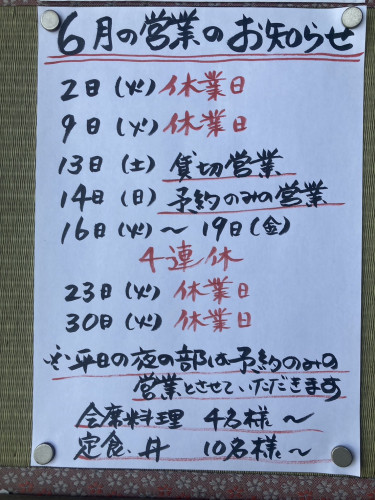 6月の営業のお知らせ
2日(火)休業日
9日(火)休業日
13日(土)貸切営業
14日(日)予約のみの営業
16日(火)～19日(金)
4連休
23日(火)休業日
30日(火)休業日
※平日の夜の部は予約のみの
営業とさせていただきます
会席料理 4名様～
定食、丼 10名様～